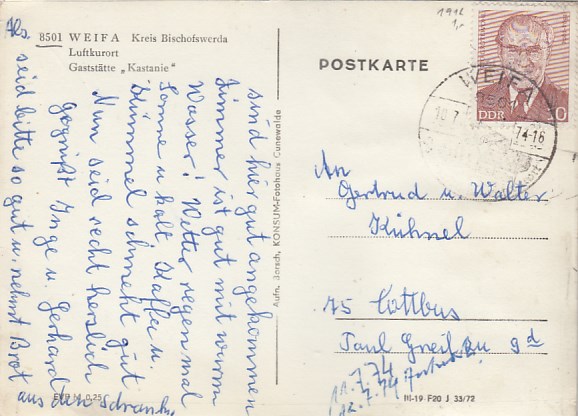 8501 WEIFA Kreis Bischofswerda
Luftkurort
Gaststätte „Kastanie"
sind hier gut angekommen
Zimmer ist gut mit warm
Wasser! Wetter regen mal
Sonne u. halt Kaffee u.
Himmel schmeckt gut.
Nun seid recht herzlich
gegrüßt Inge u. Gerhard
seid bitte so gut u. nehmt Brot
aus den Schrank
Aufn. Jorsch, KONSUM-Fotohaus Cunewalde
EVP M 0,25
POSTKARTE
1912
1,-
WEIFA
8501
74-16
DDR
10
An
Gertrud u. Walter
Kühnel
75 Cottbus
Paul Greifzu 9d
11.7.74
12.7.74
III-19-F20 J 33/72